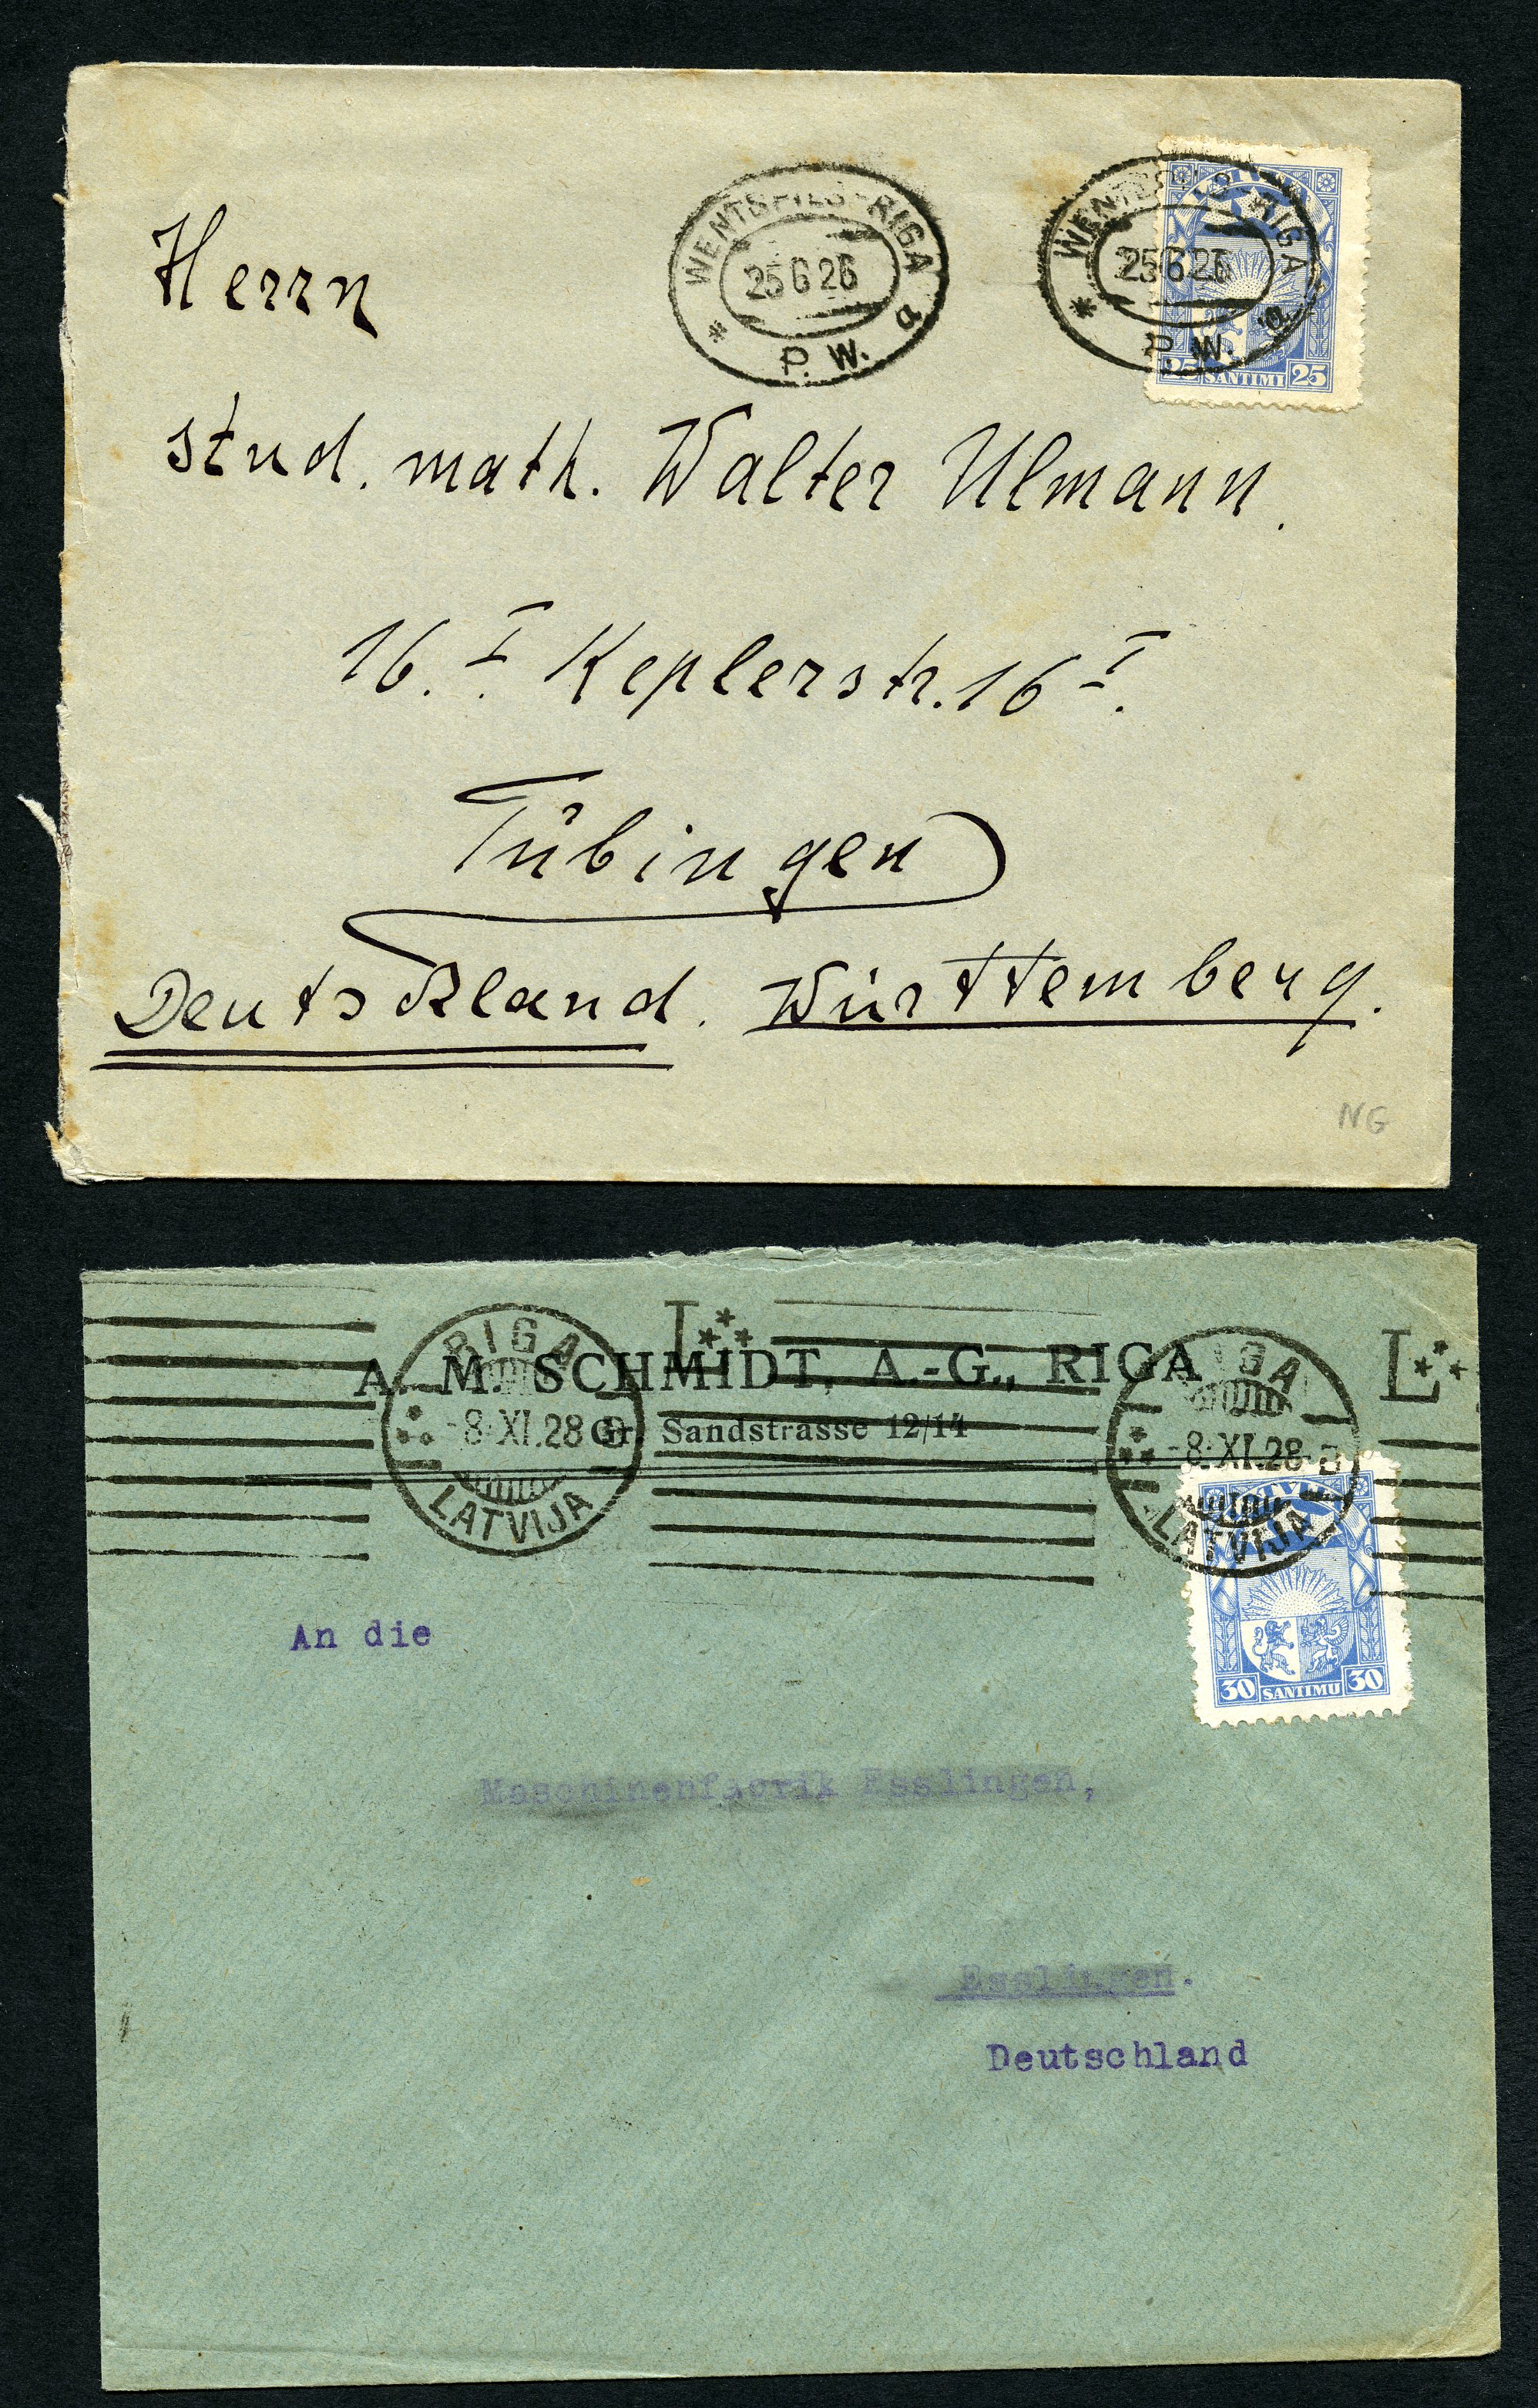 WENTSPILS-RIGA
25 6 26
* P. W. a
WENTSPILS-RIGA
25 6 26
* P. W. a
LATVIJA
25 SANTIMI 25
Herrn
stud. math. Walter Ulmann.
16. I Keplerstr. 16 I.
Tübingen
Deutschland. Württemberg.
NG
RIGA
-8.XI.28
LATVIJA
L
A. M. SCHMIDT, A.-G., RIGA
Gr. Sandstrasse 12/14
RIGA
-8.XI.28
LATVIJA
L
LATVIJA
30 SANTIMU 30
An die
Maschinenfabrik Esslingen,
Esslingen.
Deutschland